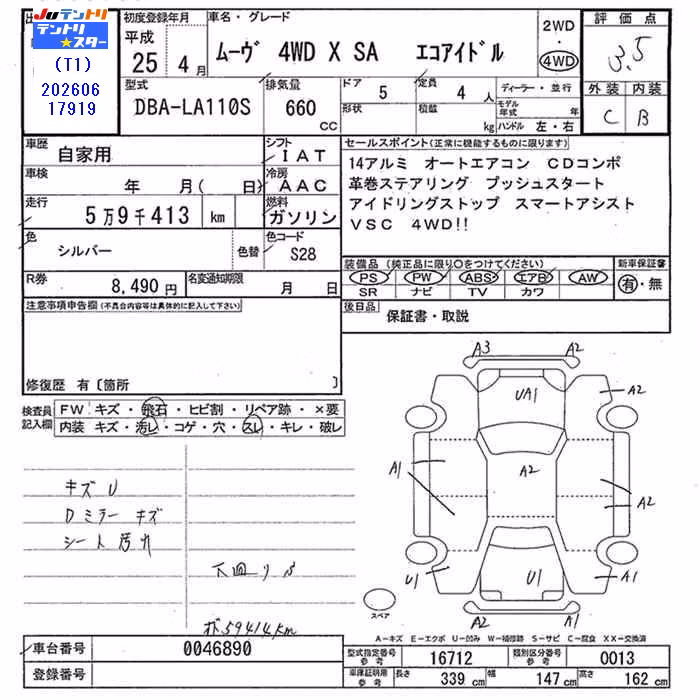 出
JUテントリ
テントリ★スター
(T1)
202606
17919
初度登録年月
平成
25 4月
車名・グレード
ムーヴ 4WD X SA エコアイドル
2WD
・
4WD
評価点
3.5
外装 内装
C B
型式
DBA-LA110S
排気量
660
cc
ドア
5
形状
定員
4人
積載
kg
ディーラー・並行
モデル年式 年
ハンドル 左・右
車歴
自家用
シフト
IAT
車検
年 月( 日)
冷房
AAC
走行
5万9千413 km
燃料
ガソリン
色
シルバー
色替
色コード
S28
R券
8,490円
名変通知期限
月 日
セールスポイント(正常に機能するものに限ります)
14アルミ オートエアコン CDコンポ
革巻ステアリング プッシュスタート
アイドリングストップ スマートアシスト
VSC 4WD!!
装備品(純正品に限り○をつけてください)
PS PW ABS エアB AW
SR ナビ TV カワ
新車保証書
有・無
後日品
保証書・取説
注意事項申告欄(不具合内容等は具体的に記入して下さい)
修復歴 有〔箇所 〕
検査員
記入欄
FW キズ・飛石・ヒビ割・リペア跡・×要
内装 キズ・汚レ・コゲ・穴・スレ・キレ・破レ
キズU
Dミラーキズ
シート汚れ
下回りS
59414km
A3 A2
UA1
A2
A1
A2
A2
U1
U1
A1
スペア
A2
A1
A-キズ E-エクボ U-凹み W-補修跡 S-サビ C-腐食 XX-交換済
車台番号
0046890
登録番号
型式指定番号
参考
16712
類別区分番号
参考
0013
車庫証明用
参考
長さ 339 cm 幅 147 cm 高さ 162 cm